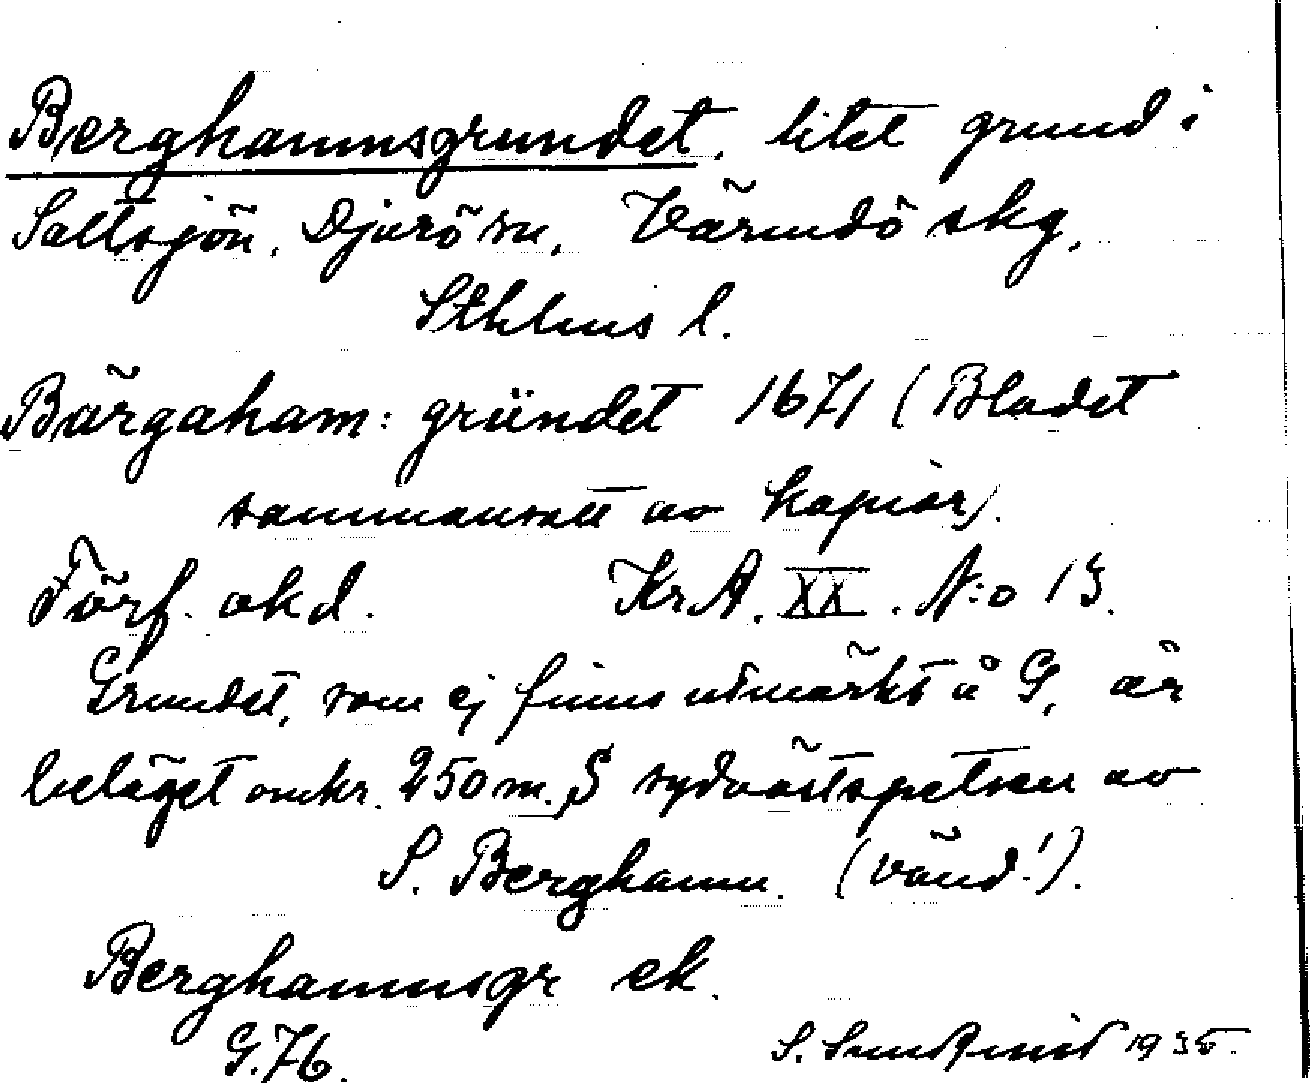 Berghamnsgrundet. litet grund i
Saltsjön, Djurö sn, Värmdö skg,
Sthlms l.
Bärgaham: gründet 1671 (Bladet
sammansatt av kopior).
Förf. okd. Kr.A. XX. N:o 13.
Grundet, som ej finns utmärkt å G, är
beläget omkr. 250 m. S sydvästspetsen av
S. Berghamn. (vänd!).
Berghamnsgr ek.
G.76.
S. 1935.